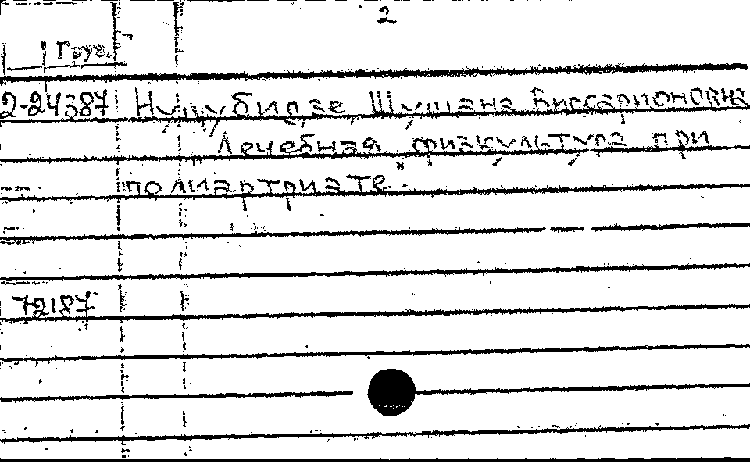 2
Груз.
2-24387 Нуцубидзе Шушана Виссарионовна
Лечебная физкультура при
полиартрите".
72187